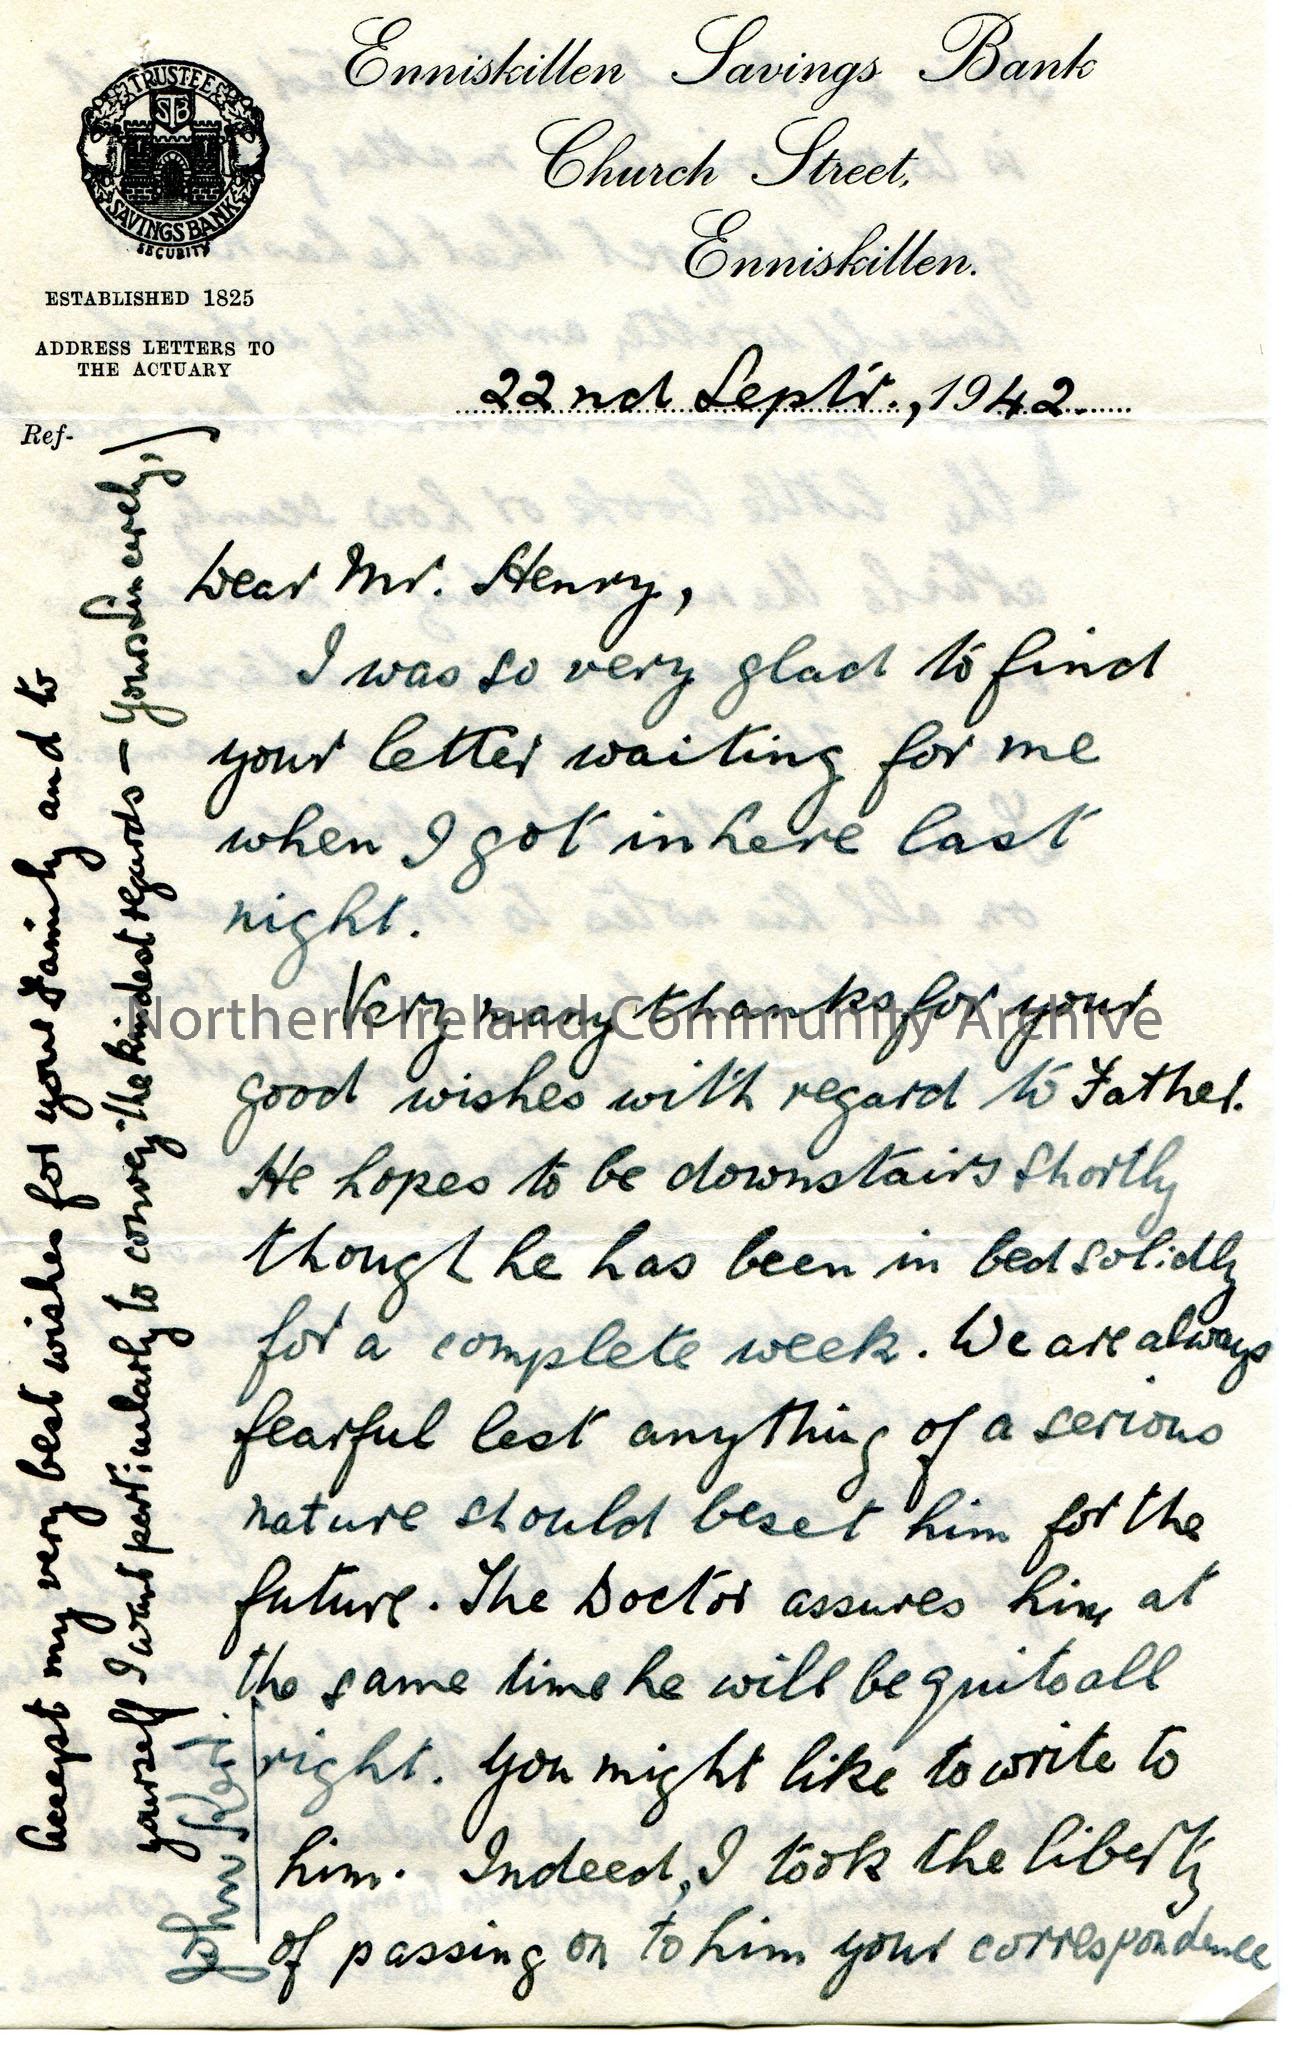 Enniskillen Savings Bank
Church Street,
Enniskillen.
TRUSTEE
STB
SAVINGS BANK
SECURITY
ESTABLISHED 1825
ADDRESS LETTERS TO
THE ACTUARY
22nd Septr., 1942
Ref-
Dear Mr. Henry,
I was so very glad to find
your letter waiting for me
when I got in here last
night.
Very many thanks for your
good wishes with regard to Father.
He hopes to be downstairs shortly
though he has been in bed solidly
for a complete week. We are always
fearful lest anything of a serious
nature should beset him for the
future. The Doctor assures him at
the same time he will be quite all
right. You might like to write to
him. Indeed, I took the liberty
of passing on to him your correspondence
Accept my very best wishes for your Family and to
yourself I want particularly to convey the kindest regards – Yours Sincerely,
John
Northern Ireland Community Archive